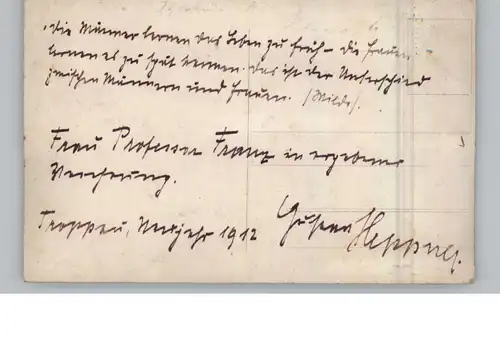 „Die Männer lernen das Leben zu früh – die Frauen
lernen es zu spät kennen. das ist der Unterschied
zwischen Männern und Frauen. (Wilde).
Frau Professor Franz in ergebener
Verehrung.
Troppau, Neujahr 1912
Gustav Heppner.